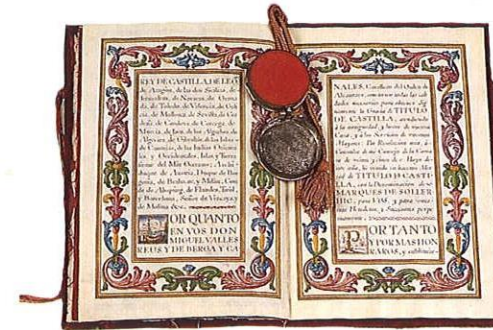 REY DE CASTILLA, DE LEO
de Aragon, de las dos Sicilias, de
Jerusalem, de Navarra, de Grana
da, de Toledo, de Valencia, de Gali
cia, de Mallorca, de Sevilla, de Cer
deña, de Cordova, de Corcega, de
Murcia, de Jaen, de los Algarbes, de
Algecira, de Gibraltar, de las Islas
de Canaria, de las Indias Orienta
les, y Occidentales, Islas, y Tierra
firme del Mar Occeano; Archi
duque de Austria, Duque de Bor
goña, de Brabante, y Milan, Con
de de Abspurg, de Flandes, Tirol,
y Barcelona; Señor de Vizcaya,
de Molina &c.
POR QUANTO
EN VOS DON
MIGUEL VALLES
REUS Y DE BERGA Y CA
NALES, Cavallero del Orden de
Alcantara, concurren todas las cali
dades necesarias para obtener dig
namente la Gracia de TITULO
DE CASTILLA, atendiendo
à la antiguedad, y lustre de vuestra
Casa, y à los Servicios de vuestros
Mayores: Por Resolucion mia, à
Consulta de mi Consejo de la Cama
ra de veinte y cinco de Mayo de
este año, he venido en haceros Mer
ced de TITULO DE CASTI-
LLA, con la Denominacion de
MARQUES DE SOLLER
HIC, para VOS, y para vues
tros Herederos, y Succesores perpe
tuamente
POR TANTO
Y POR MAS HON
RAROS, y sublimar